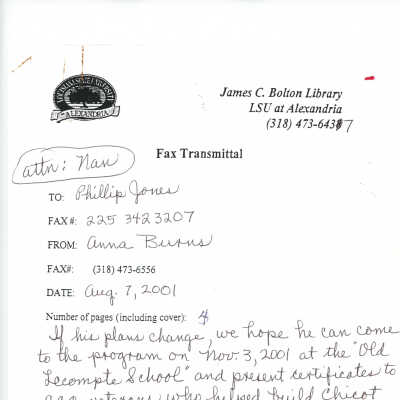 LOUISIANA STATE UNIVERSITY
ALEXANDRIA
James C. Bolton Library
LSU at Alexandria
(318) 473-6437
Fax Transmittal
attn: Nan
TO: Phillip Jones
FAX#: 225 342 3207
FROM: Anna Burns
FAX#: (318) 473-6556
DATE: Aug. 7, 2001
Number of pages (including cover): 4
If his plans change, we hope he can come
to the program on Nov. 3, 2001 at the "Old
Lecompte School" and present certificates to
veterans who helped build Chicot